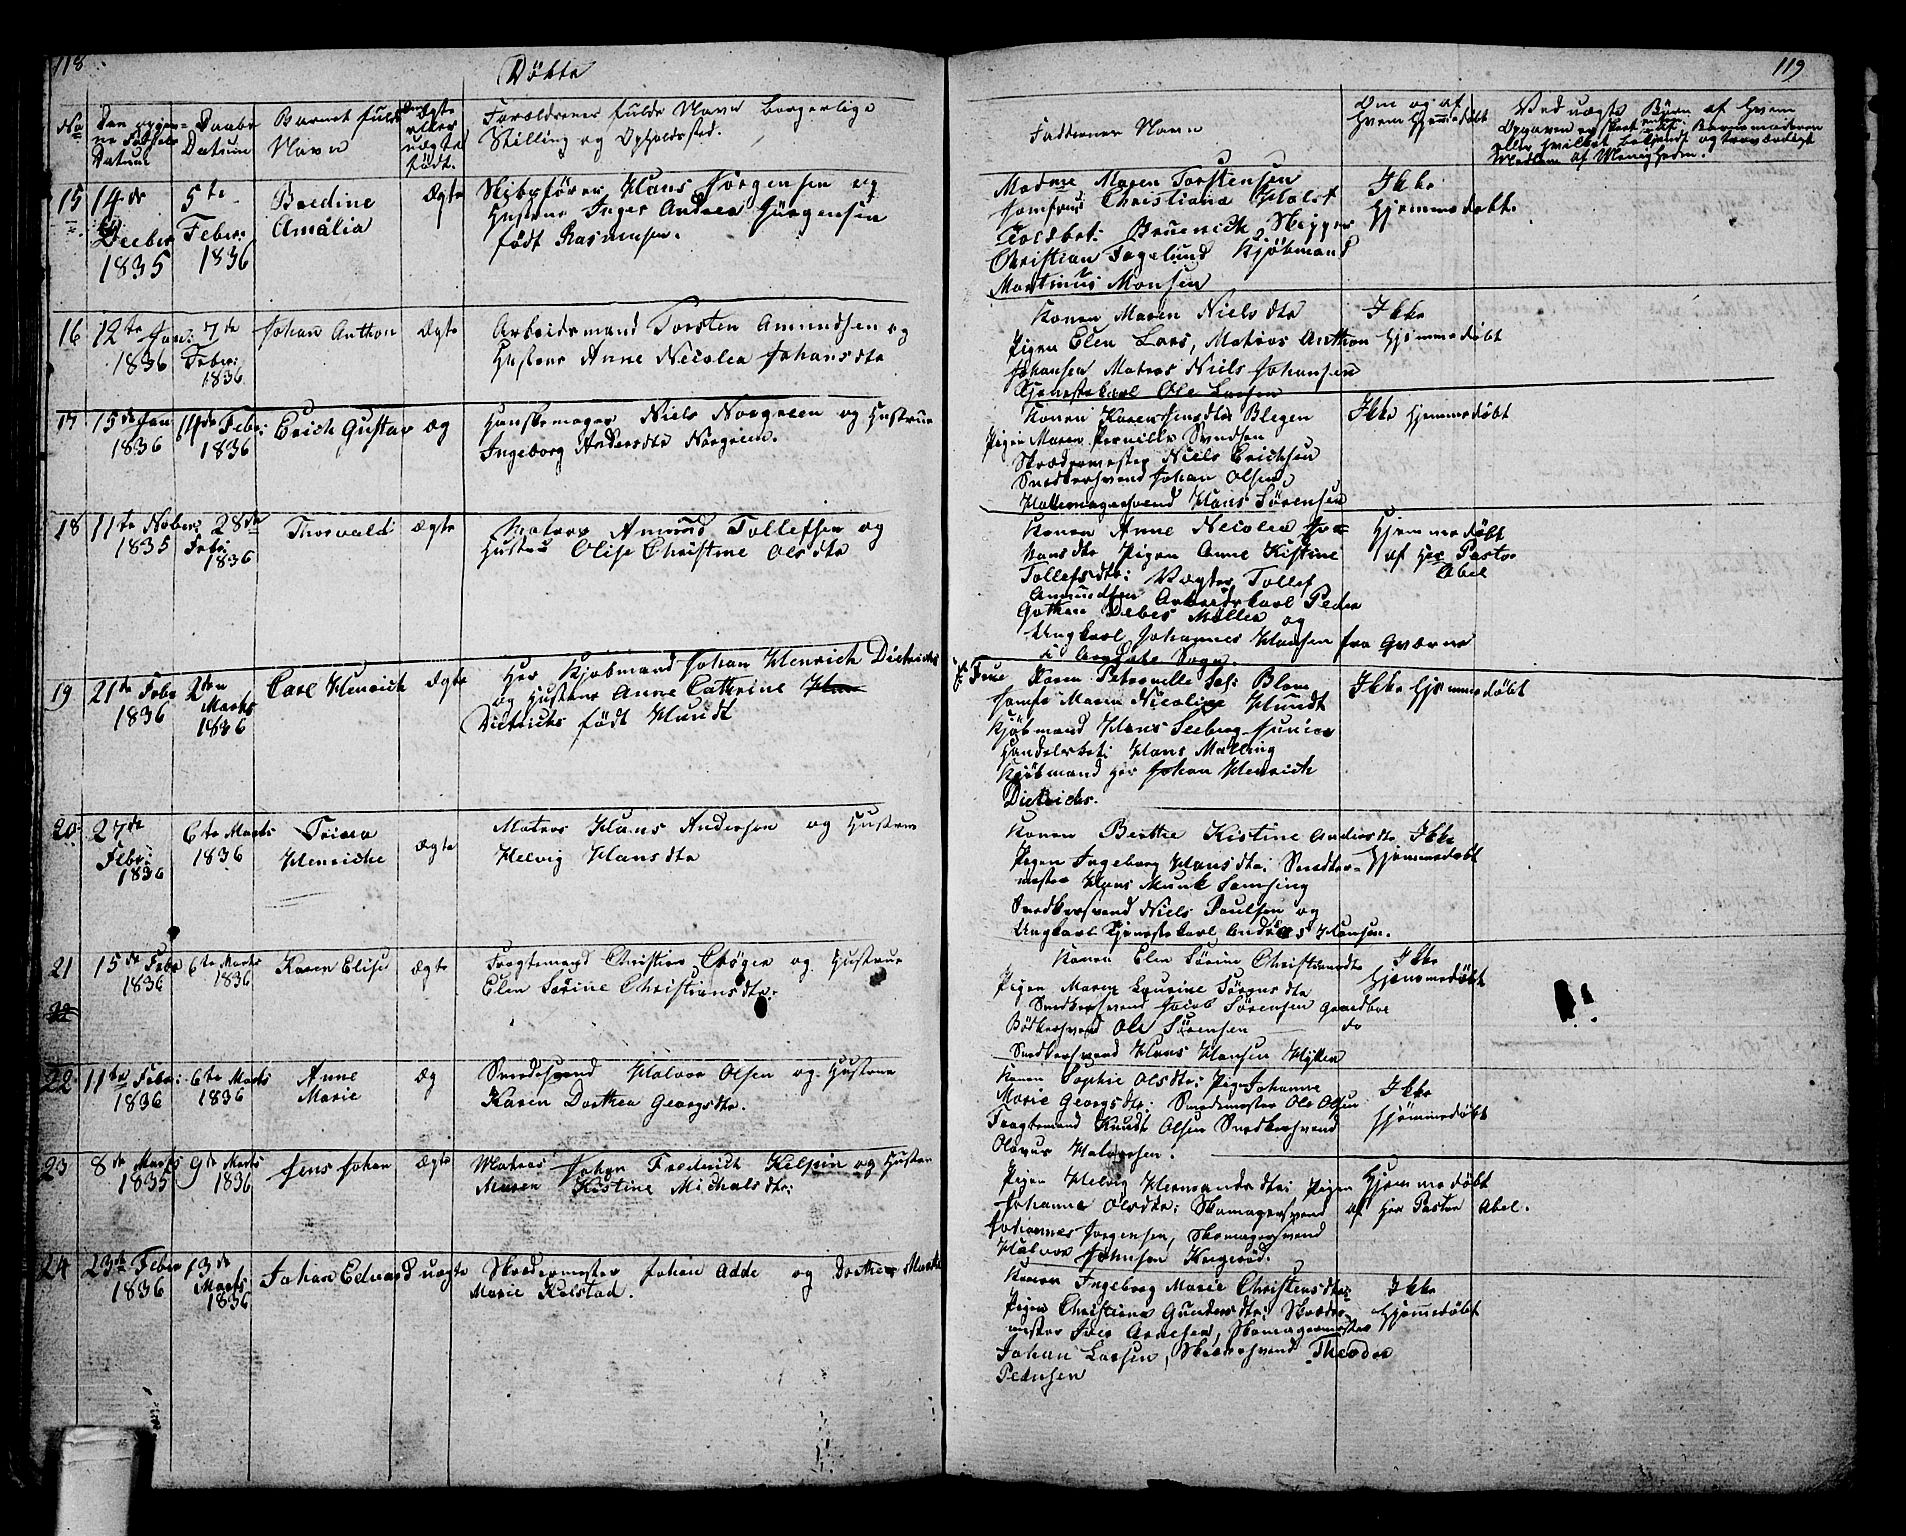 118
Døbte
No
Den opgivne Fødsels Datum
Daabs Datum
Barnets fulde Navn
Om Ægte eller uægte født.
Forældrenes fulde Navn borgerlige
Stilling og Opholdssted.
15
14de
Decber
1835
5te
Febr:
1836
Bredine
Amalia
Ægte
Skibsfører Hans Jørgensen og
Hustrue Inger Andrea Jürgensen
født Rasmusen.
16
12te Jan:
1836
7de
Febr:
1836
Johan Anthon
Ægte
Arbeidsmand Torsten Amundsen og
Hustrue Anne Nicolea Johansdtr
17
15de Jan
1836
14de Febr:
1836
Erich Gustav
Æg
Hanskemager Niels Norgreen og Hustrue
Ingeborg Andersdtr Norgreen.
18
11te Nober:
1835
28de
Febr
1836
Thorvald
Ægte
Matros Amund Tollefsen og
Hustru Olise Christine Olsdtr
19
21de Febr
1836
2den
Marts
1836
Carl Henrich
Ægte
Her Kjøbmand Johan Henrich Dietrichs
og Hustrue Anne Cathrine
Dietrichs født Hundt
20
27de
Febr:
1836
6te Marts
1836
Henriche
Ægte
Matros Hans Andersen og Hustrue
Helvig Hansdtr
21
15de Febr
1836
6te Marts
1836
Karen Elise
Ægte
Fragtemand Christian og Hustrue
Elen Sørine Christiansdtr:
22
22
11te Febr:
1836
6te Marts
1836
Anne
Marie
Æg
Smedesvend Halvor Olsen og Hustrue
Karen Dorthea Georgsdtr.
23
8de Marts
1835
9de Marts
1836
Jens Johan
Ægte
Matros Johan Frederich Kilpin og Hustru
Maren Kistine Michalsdtr:
24
23de Febr
1836
13de
Marts
1836
Johan Eduard
uægte
Skredermester Johan Adde og Dorthe
Marie Kolstad.
119
Faddernes Navn
Om og af
Hvem Hjemmedøbt
Ved uægte Børn af Hvem
Opgaven er skeet enten af Barnemoderen
eller hvilket bekjendt og troværdigt
Medlem af Menigheden.
Madme Maren Torstensen
Jomfrue Christiana Holst
Toldbet: Bruenich Skipper
Christian Fagelund Kjøbmand
Martinus Monsen
Ikke
Hjemmedøbt.
Konen Maren Nielsdtr
Pigen Elen Lars, Matros Anthon
Johansen Matros Niels Johansen
Tjenestekarl Ole Larsen
Ikke
Hjemmedøbt
Konen Karen Jensdtr Blegen
Pigen Maren Pernille Svendsen
Skrædermester Niels Erichsen
Snedkersvend Johan Olsen
Hattemagersvend Hans Sørensen
Ikke Hjemmedøbt
Konen Anne Nicolea Jo-
hansdtr Pigen Anne Kistine
Tollefsdtr: Vægter Tollef
Amundsen Arbeidskarl Peder
Debes Møller og
Ungkarl Johannes Hansen fra
i Sogn.
Hjemmedøbt
af Her Pastor
Abel
Frue Karen Petronelle Sal: Blom
Jomfr Maren Nicoline Hundt
Kjøbmand Hans Seeberg Junior
Handelsbet: Hans Malling
Kjøbmand Her Johan Henrich
Dietrichs.
Ikke Hjemmedøbt
Konen Berthe Kistine Andersdtr
Pigen Ingeborg Hansdtr: Snedker-
mester Hans Munk Samsing
Snedkersvend Niels Poulsen og
Ungkarl Tjenestekarl Andreas Hansen.
Ikke
Hjemmedøbt
Konen Elen Sørine Christiansdtr
Pigen Maren Laurine Sørensdtr
Snedkersvend Jacob Sørensen
Bødkersvend Ole Sørensen do
Snedkersvend Hans Hansen
Ikke
Hjemmedøbt
Konen Sophie Olsdtr: Pige Johanne
Marie Georgsdtr: Smedemester Ole Olsen
Fragtemand Knudt Olsen Snedkersvend
Olavus Halvorsen.
Ikke
Hjemmedøbt
Pigen Helvig Hermandsdtr: Pigen
Johanne Olsdtr: Skomagersvend
Johannes Jørgensen, Skomagersvend
Halvor Johnsen
Hjemmedøbt
af Her Pastor Abel.
Konen Ingeborg Marie Christensdtr:
Pigen Christiane Gundersdtr: Skræder-
mester Arnesen, Skomagermester
Johan Larsen, Theodor
Pedersen
Ikke
Hjemmedøbt